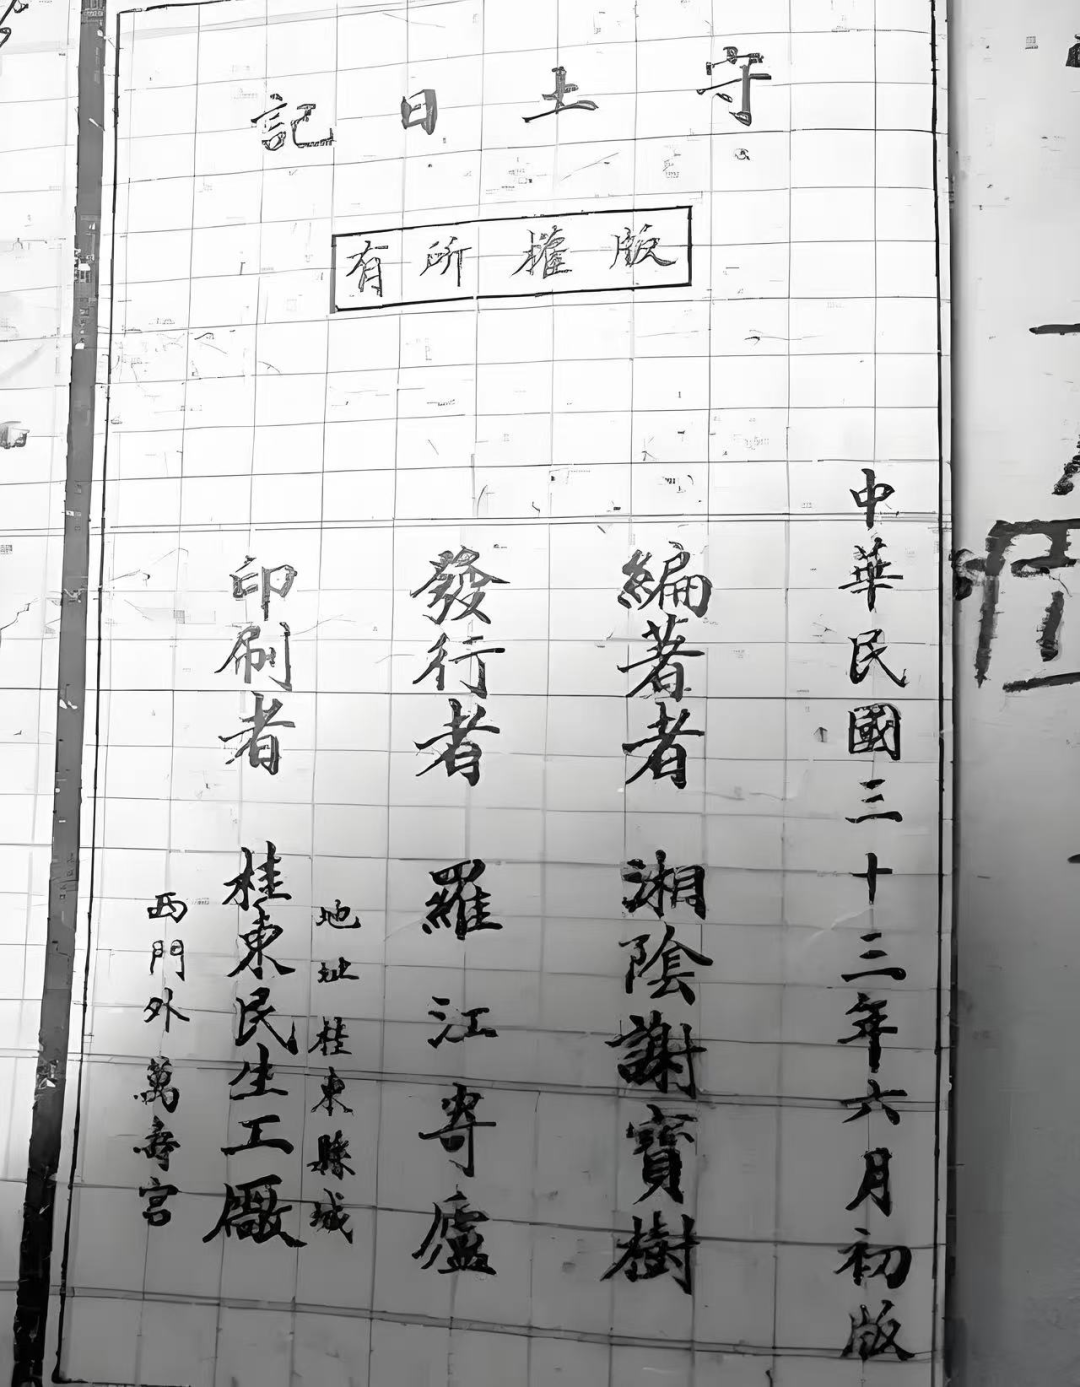 守土日記
版權所有
中華民國三十三年六月初版
編著者 湘陰謝寶樹
發行者 羅江寄廬
地址 桂東縣城
印刷者 桂東民生工廠
西門外萬壽宮